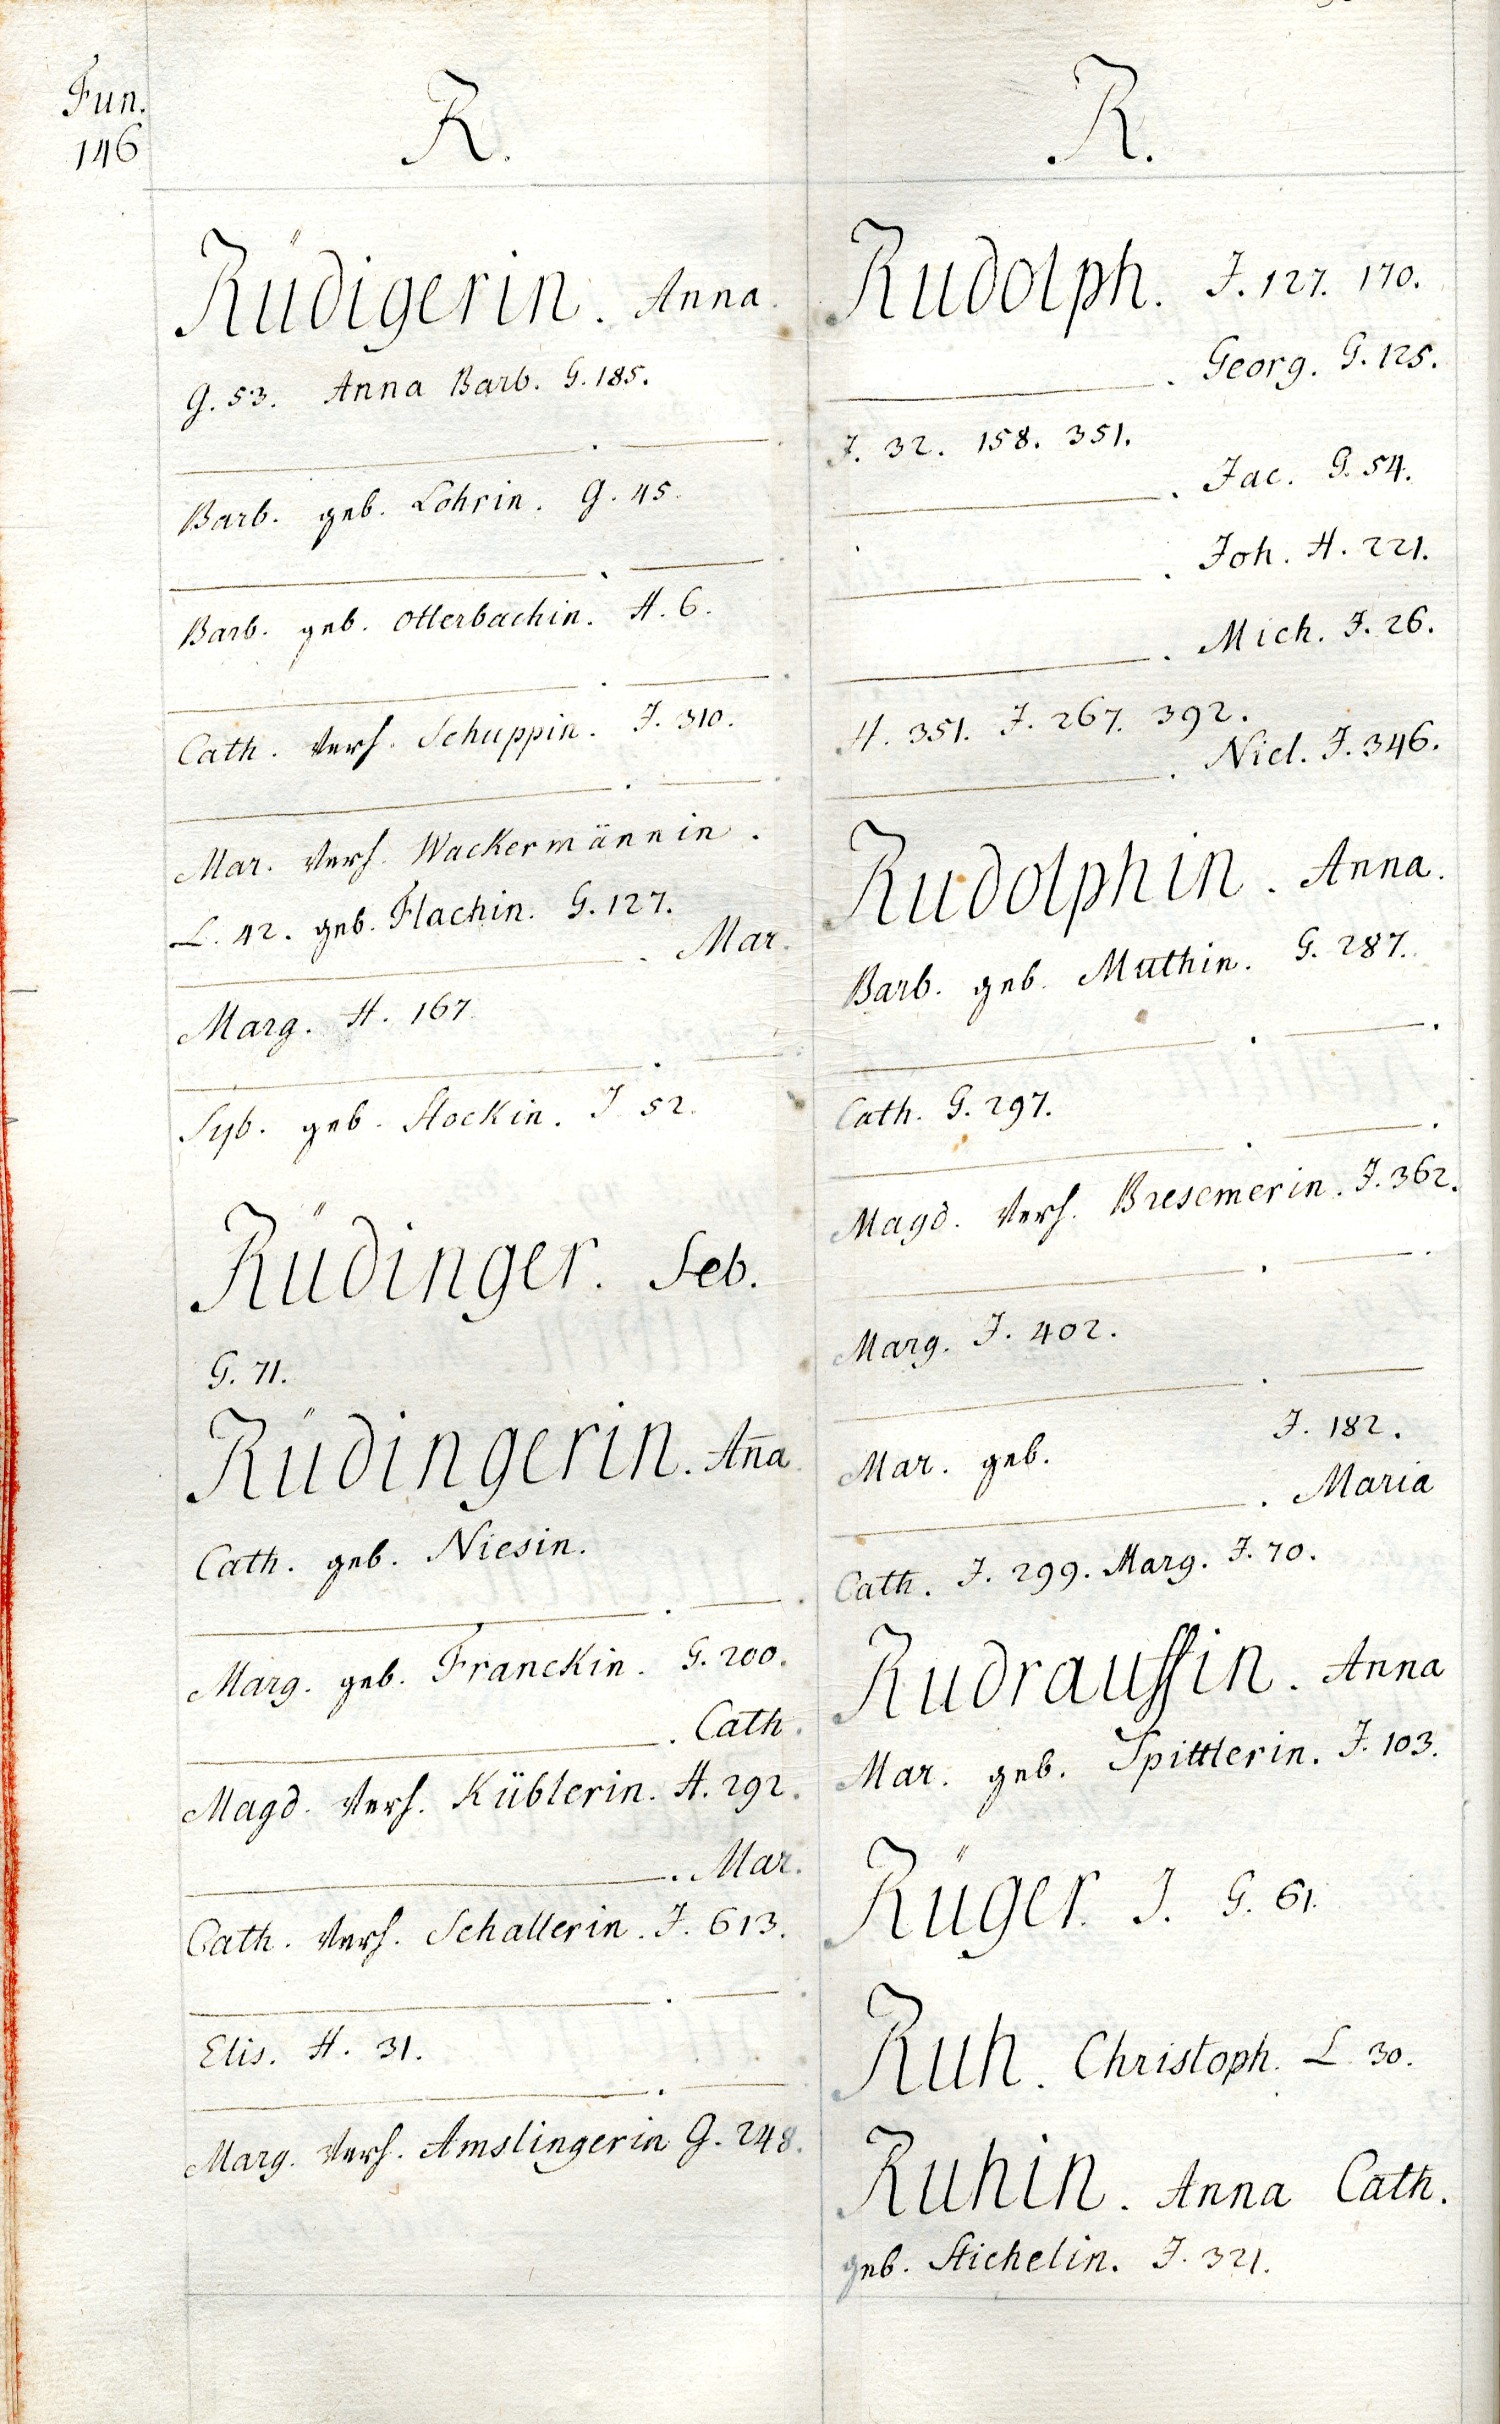 Fun.
146
R.
Rüdigerin. Anna.
G. 53. Anna Barb. G. 185.
Barb. geb. Lohrin. G. 45.
Barb. geb. Otterbachin. H. 6.
Cath. verh. Schuppin. J. 310.
Mar. verh. Wackermännin.
L. 42. geb. Flachin. G. 127.
. Mar.
Marg. H. 167
Syb. geb. Stockin. J 52.
Rüdinger. Seb.
G. 71.
Rüdingerin. Aña.
Cath. geb. Niesin.
Marg. geb. Franckin. G. 200.
. Cath.
Magd. verh. Küblerin. H. 292.
. Mar.
Cath. verh. Schallerin. J. 613.
Elis. H. 31.
Marg. verh. Amslingerin G. 248.
.R.
Rudolph. J. 127. 170.
. Georg. G. 125.
J. 32. 158. 351.
. Jac. G. 54.
. Joh. H. 221.
. Mich. J. 26.
H. 351. J. 267. 392.
. Nicl. J. 346.
Rudolphin. Anna.
Barb. geb. Muthin. G. 287.
Cath. G. 297.
Magd. verh. Bresemerin. J. 362.
Marg. J. 402.
Mar. geb. J. 182.
. Maria
Cath. J. 299. Marg. J. 70.
Rudraussin. Anna
Mar. geb. Spittlerin. J. 103.
Rüger. J. G. 61.
Ruh. Christoph. L. 30.
Ruhin. Anna Cath.
geb. Stichelin. J. 321.